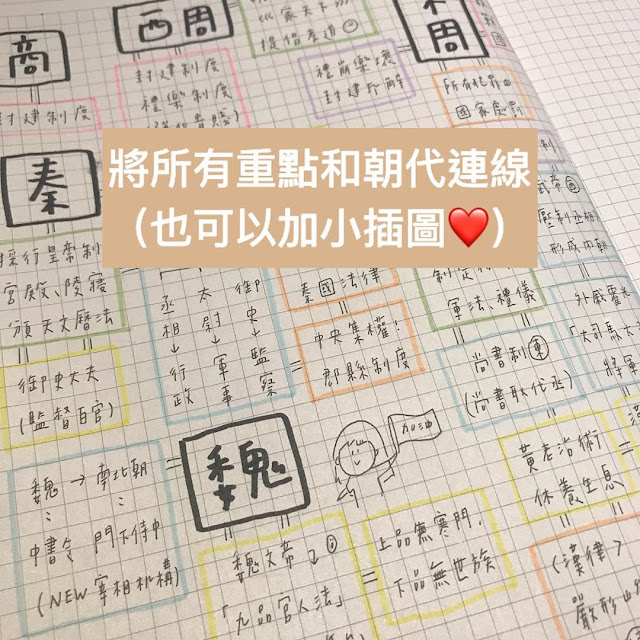 商
西周
提倡孝道
封建制度
禮樂制度
禮崩樂壞
封建瓦解
周
所有犯罪由
國家處罰
封建制度
將所有重點和朝代連線
（也可以加小插圖❤️）
秦
推行皇帝制
宮殿、陵寢
頒天文曆法
丞相→行政
太尉→軍事
御史→監察
秦國法律
中央集權！
郡縣制度
軍法、禮儀
形成內朝
外戚霍光
「大司馬大
將軍
尚書制
(尚書取代丞)
御史大夫
(監督百官)
魏
加油
魏→南北朝
中書令 門下侍中
(NEW宰相機構)
魏文帝
「九品官人法」
上品無寒門，
下品無世族
黃老治術
休養生息
(漢律)